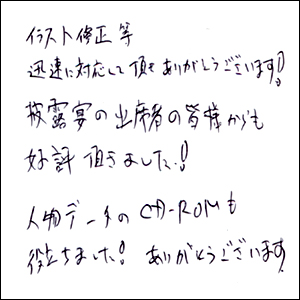 イラスト修正等
迅速に対応して頂きありがとうございます!
披露宴の出席者の皆様からも
好評頂きました!
人物データのCD-ROMも
役立ちました! ありがとうございます